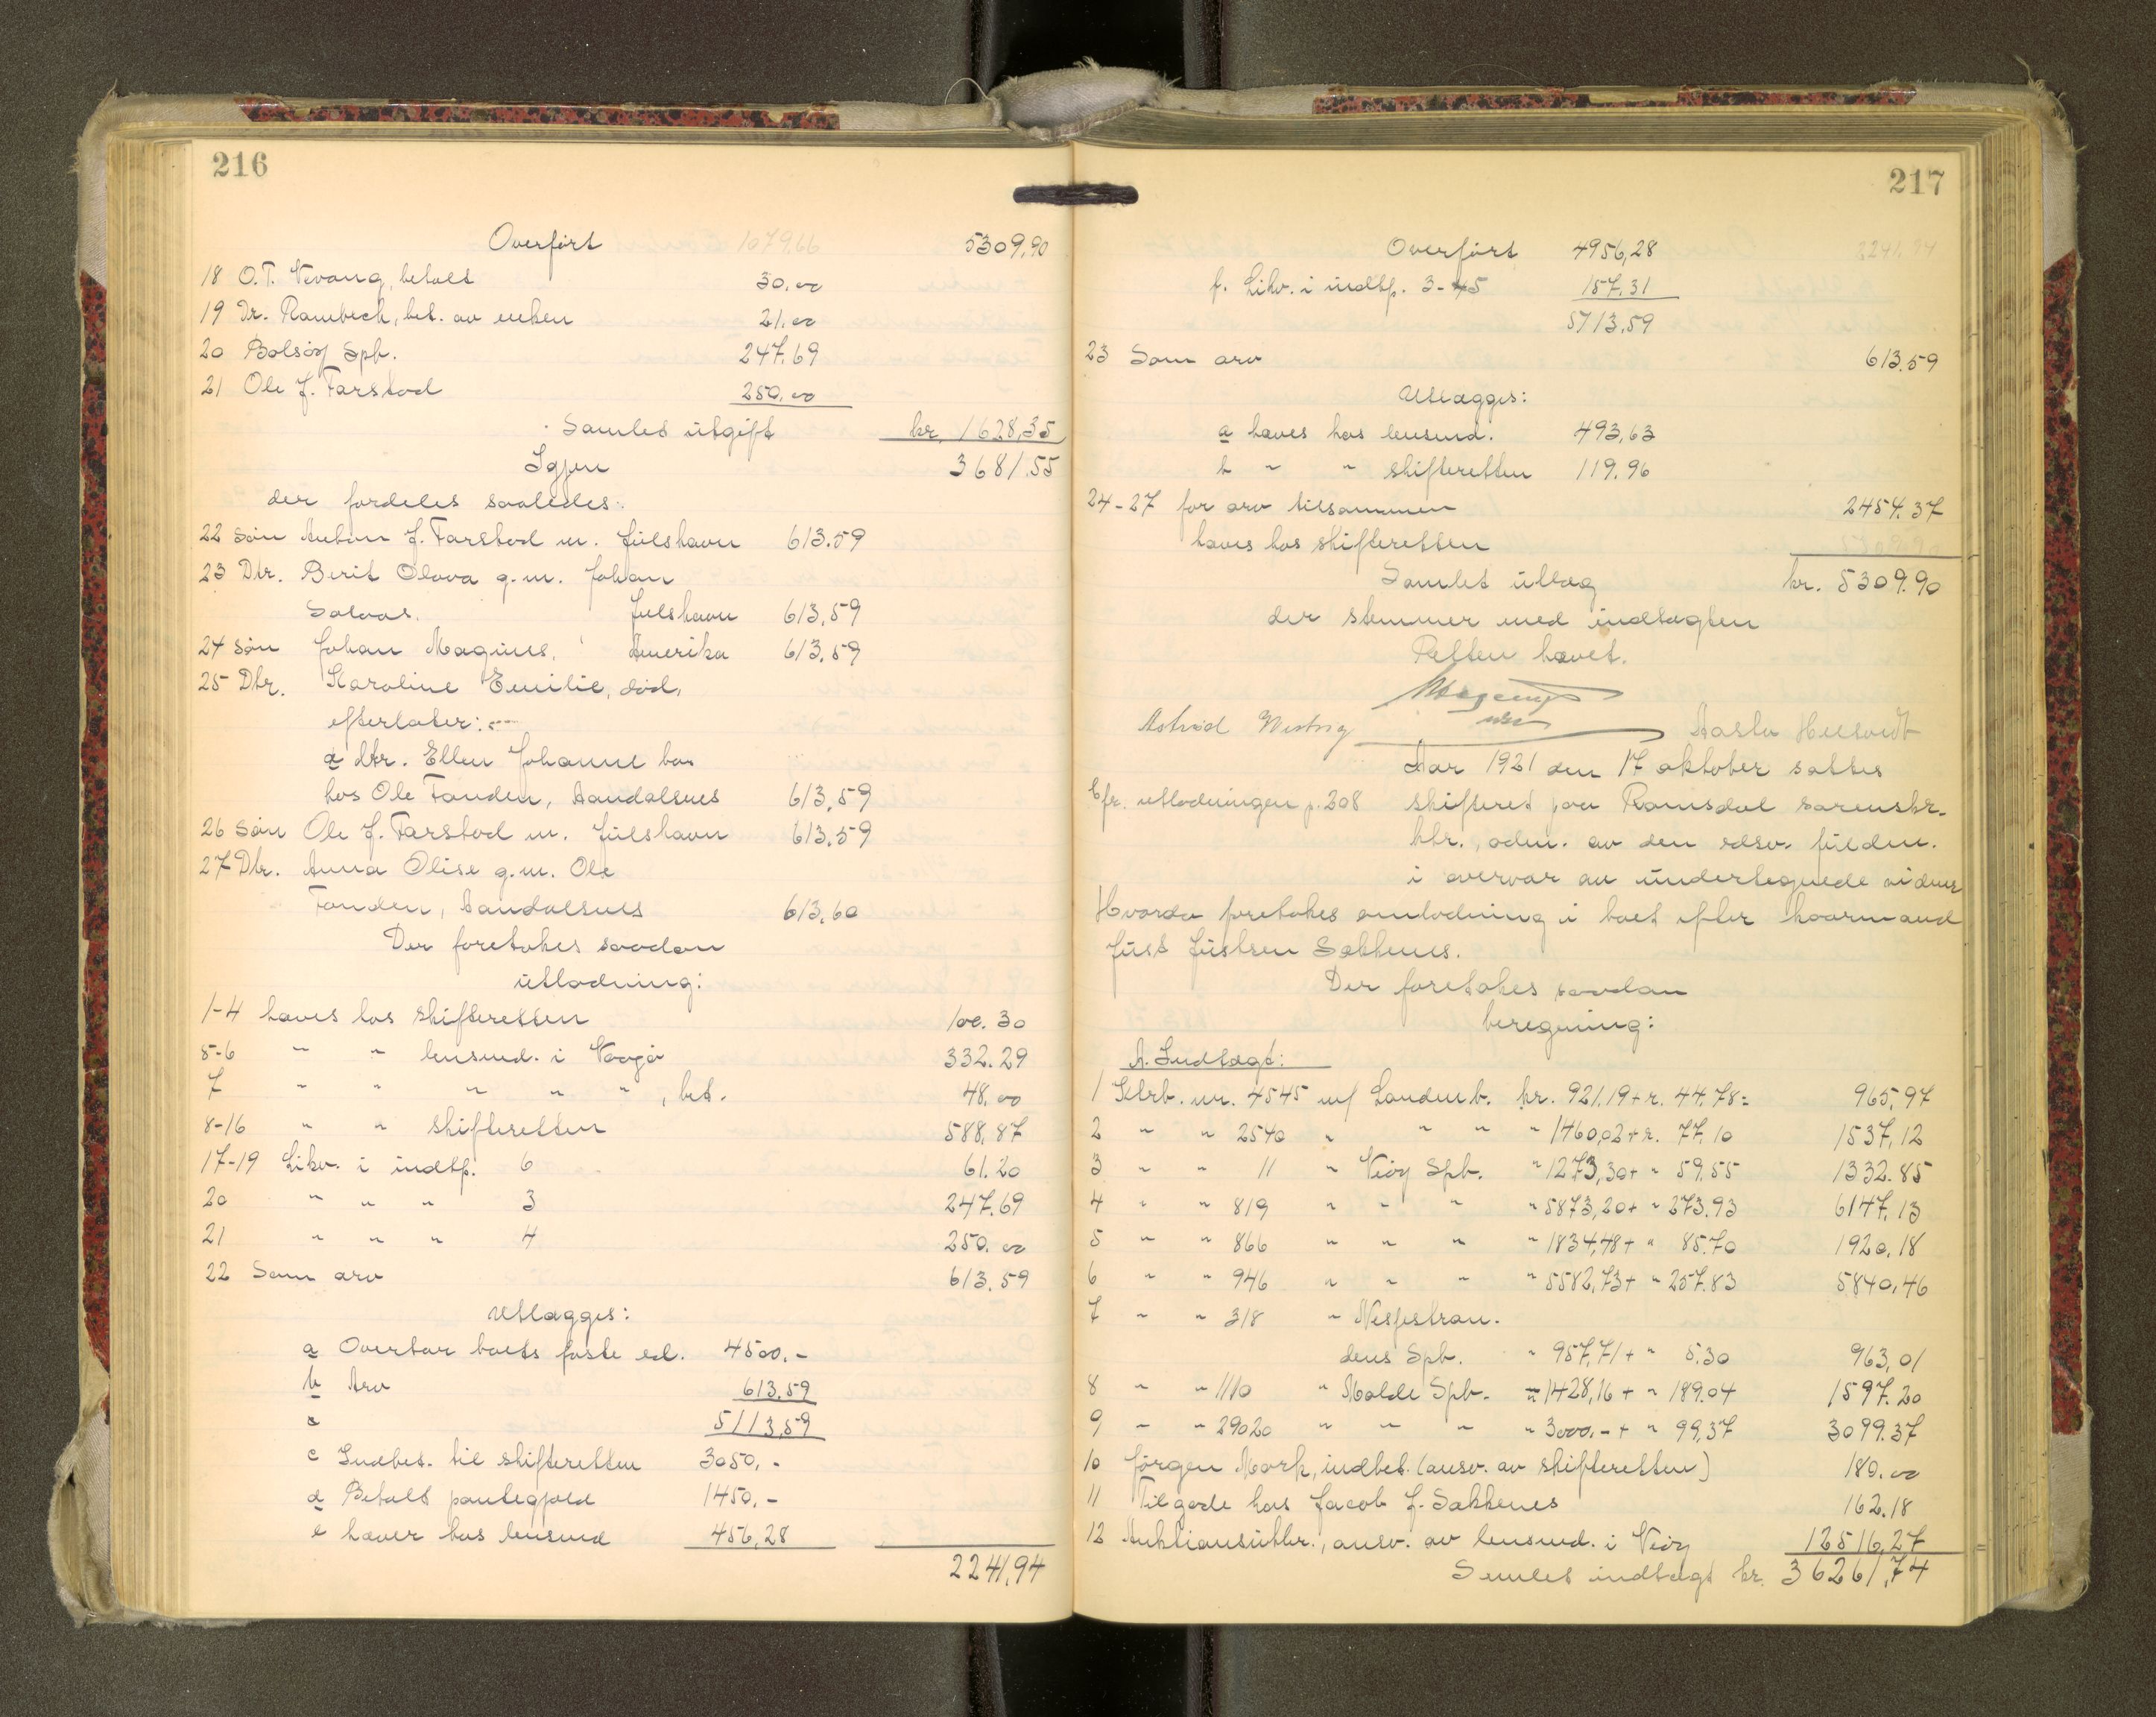 216
Overført 1079.66 5309.90
18 O.T. Nevang, betalt 30.00
19 Dr. Rambech, bet. av enken 21.00
20 Bolsöy Spb. 247.69
21 Ole J. Farstad 250.00
Samlet utgift kr. 1628,35
Igjen 3681.55
der fordeles saaledes:
22 Søn Anton J. Farstad m. Julshavn 613.59
23 Dtr. Berit Olava g.m. Johan
Salaas. Julshavn 613,59
24 Søn Johan Magnus, Amerika 613,59
25 Dtr. Karoline Emilie, död,
efterlater:
a dtr. Ellen Johanne bor
hos Ole Fanden, Aandalsnes 613,59
26 Søn Ole J. Farstad m. Julshavn 613.59
27 Dtr. Anna Olise g.m. Ole
Fanden, Aandalsnes 613,60
Der foretakes saadan
utlodning:
1-4 haves hos skifteretten 100.30
5-6 " " lensmd. i Vaagö 332.29
7 " " " " ", bet. 48.00
8-16 " " skifteretten 588,87
17-19 Likv. i indtp. 6 61.20
20 " " " 3 247.69
21 " " " 4 250.00
22 Som arv 613.59
Utlægges:
a Overtar boets faste ed. 4500.-
b Arv 613.59
5113,59
c Indbet. til skifteretten 3050,-
d Betalt pantegjæld 1450,-
e haver hos lensmd 456,28
2241,94
217
Overført 4956,28 2241,94
f. Likv. i indtp. 3-45 157.31
5113,59
23 Som arv 613.59
Utlægges:
a haves hos lensmd. 493,63
b " " skifteretten 119.96
24-27 for arv tilsammen 2454.37
haves hos skifteretten
Samlet utlæg kr. 5309.90
der stemmer med indtægten
Retten hævet.
Astrid Aasta
Aar 1921 den 17 oktober sattes
Cfr. utlodningen p. 208 skifteret paa Romsdal sorenskr.
ktr., adm. av den edsv. fuldm.
i overvær av undertegnede vidner
Hvorda foretokes omlodning i boet efter kaarmand
Just Justsen Sækkenes.
Der foretakes saadan
beregning:
A. Indtægt:
1 Ktrb. nr. 4545 m/ Landmb. kr. 921,19 + r. 44.78 = 965,97
2 " " 2540 " " " " 1460,02 + r. 77,10 1537,12
3 " " 11 " Veöy Spb. " 1273,30 + " 59,55 1332.85
4 " " 819 " " " " 5873,20 + " 273.93 6147,13
5 " " 866 " " " " 1834,48 + " 85.70 1920,18
6 " " 946 " " " " 5582,73 + " 257.83 5840,46
7 " " 318 " Nesjestran.
dens Spb. " 957,71 + " 5.30 963,01
8 " " 1110 " Molde Spb. " 1428,16 + " 189.04 1597.20
9 " " 29020 " " " " 3000.- + " 99,37 3099.37
10 Jörgen Mork, indbet. (ansv. av skifteretten) 180.00
11 Tilgode hos Jacob J. Sækkenes 162.18
12 Auktionsutbr., ansv. av lensmd. i Veöy 12516,27
Samlet indtægt kr. 36261,74